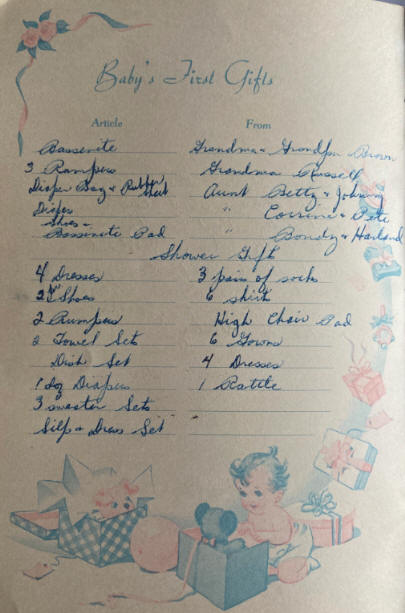 Baby's First Gifts
Article From
Bassenite Grandma & Grandpa Brown
3 Rompers Grandma Russell
Diaper Bag & Rubber Sheet Aunt Betty & Johnny
Diapers " Corrine & Pete
Shoes &
Bassenite Pad " Bondy & Harland
Shower Gifts
4 Dresses 3 pair of socks
2 pr Shoes 6 shirts
2 Rumpers High Chair Pad
2 Towel Sets 6 Gowns
Dish Set 4 Dresses
1 dz Diapers 1 Rattle
3 sweater Sets
Silp & Dress Set